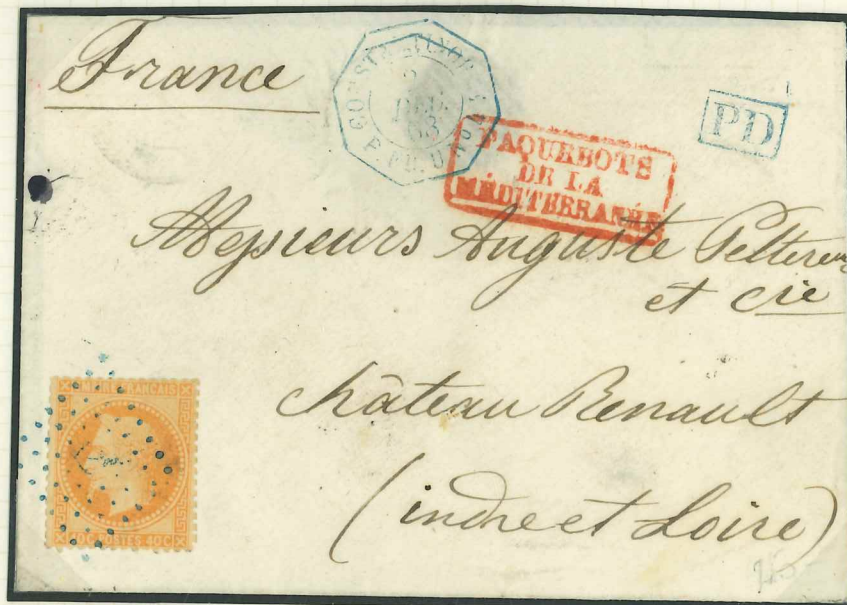 France
CONSTANTINOPLE
2
DEC.
68
PAQ. FR. U No
PD
PAQUEBOTS
DE LA
MÉDITERRANÉE
Messieurs Auguste Peltereau
et Cie
Château Renault
(indre et Loire)
EMPIRE FRANÇAIS
40C POSTES 40C